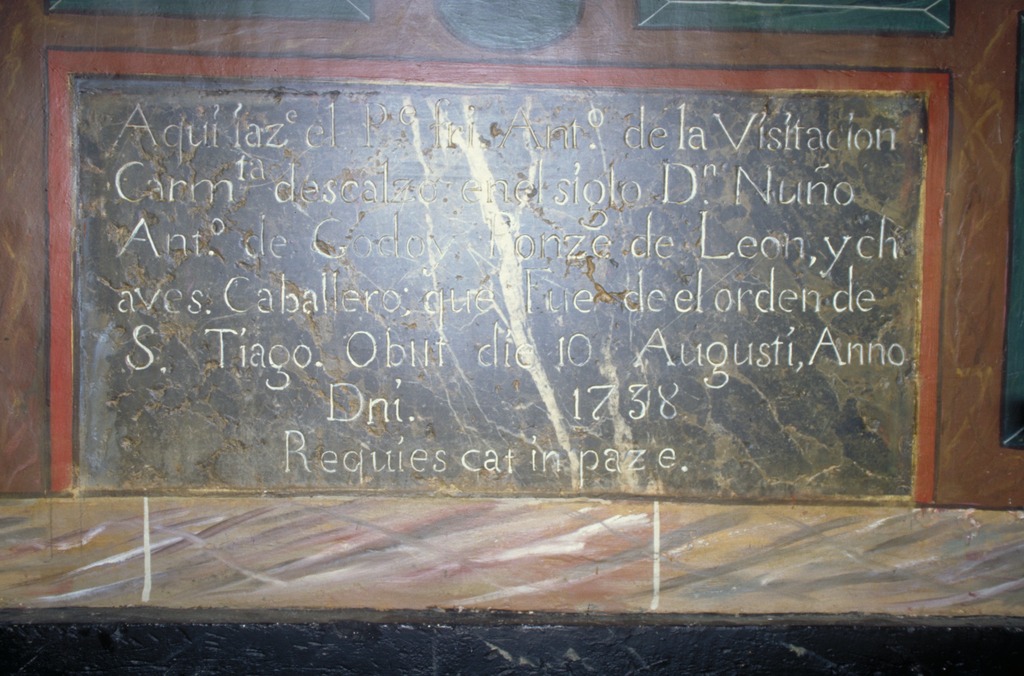 Aqui iaz^e el P^e fri Ant^o de la Visitacion
Carm^ta descalzo: en el siglo D^n Nuño
Ant^o de Godoy Ponze de Leon, y ch
aves: Caballero; que Fue de el orden de
S. Tiago. Obiit die 10 Augusti, Anno
Dni. 1738
Requies cat in paz e.